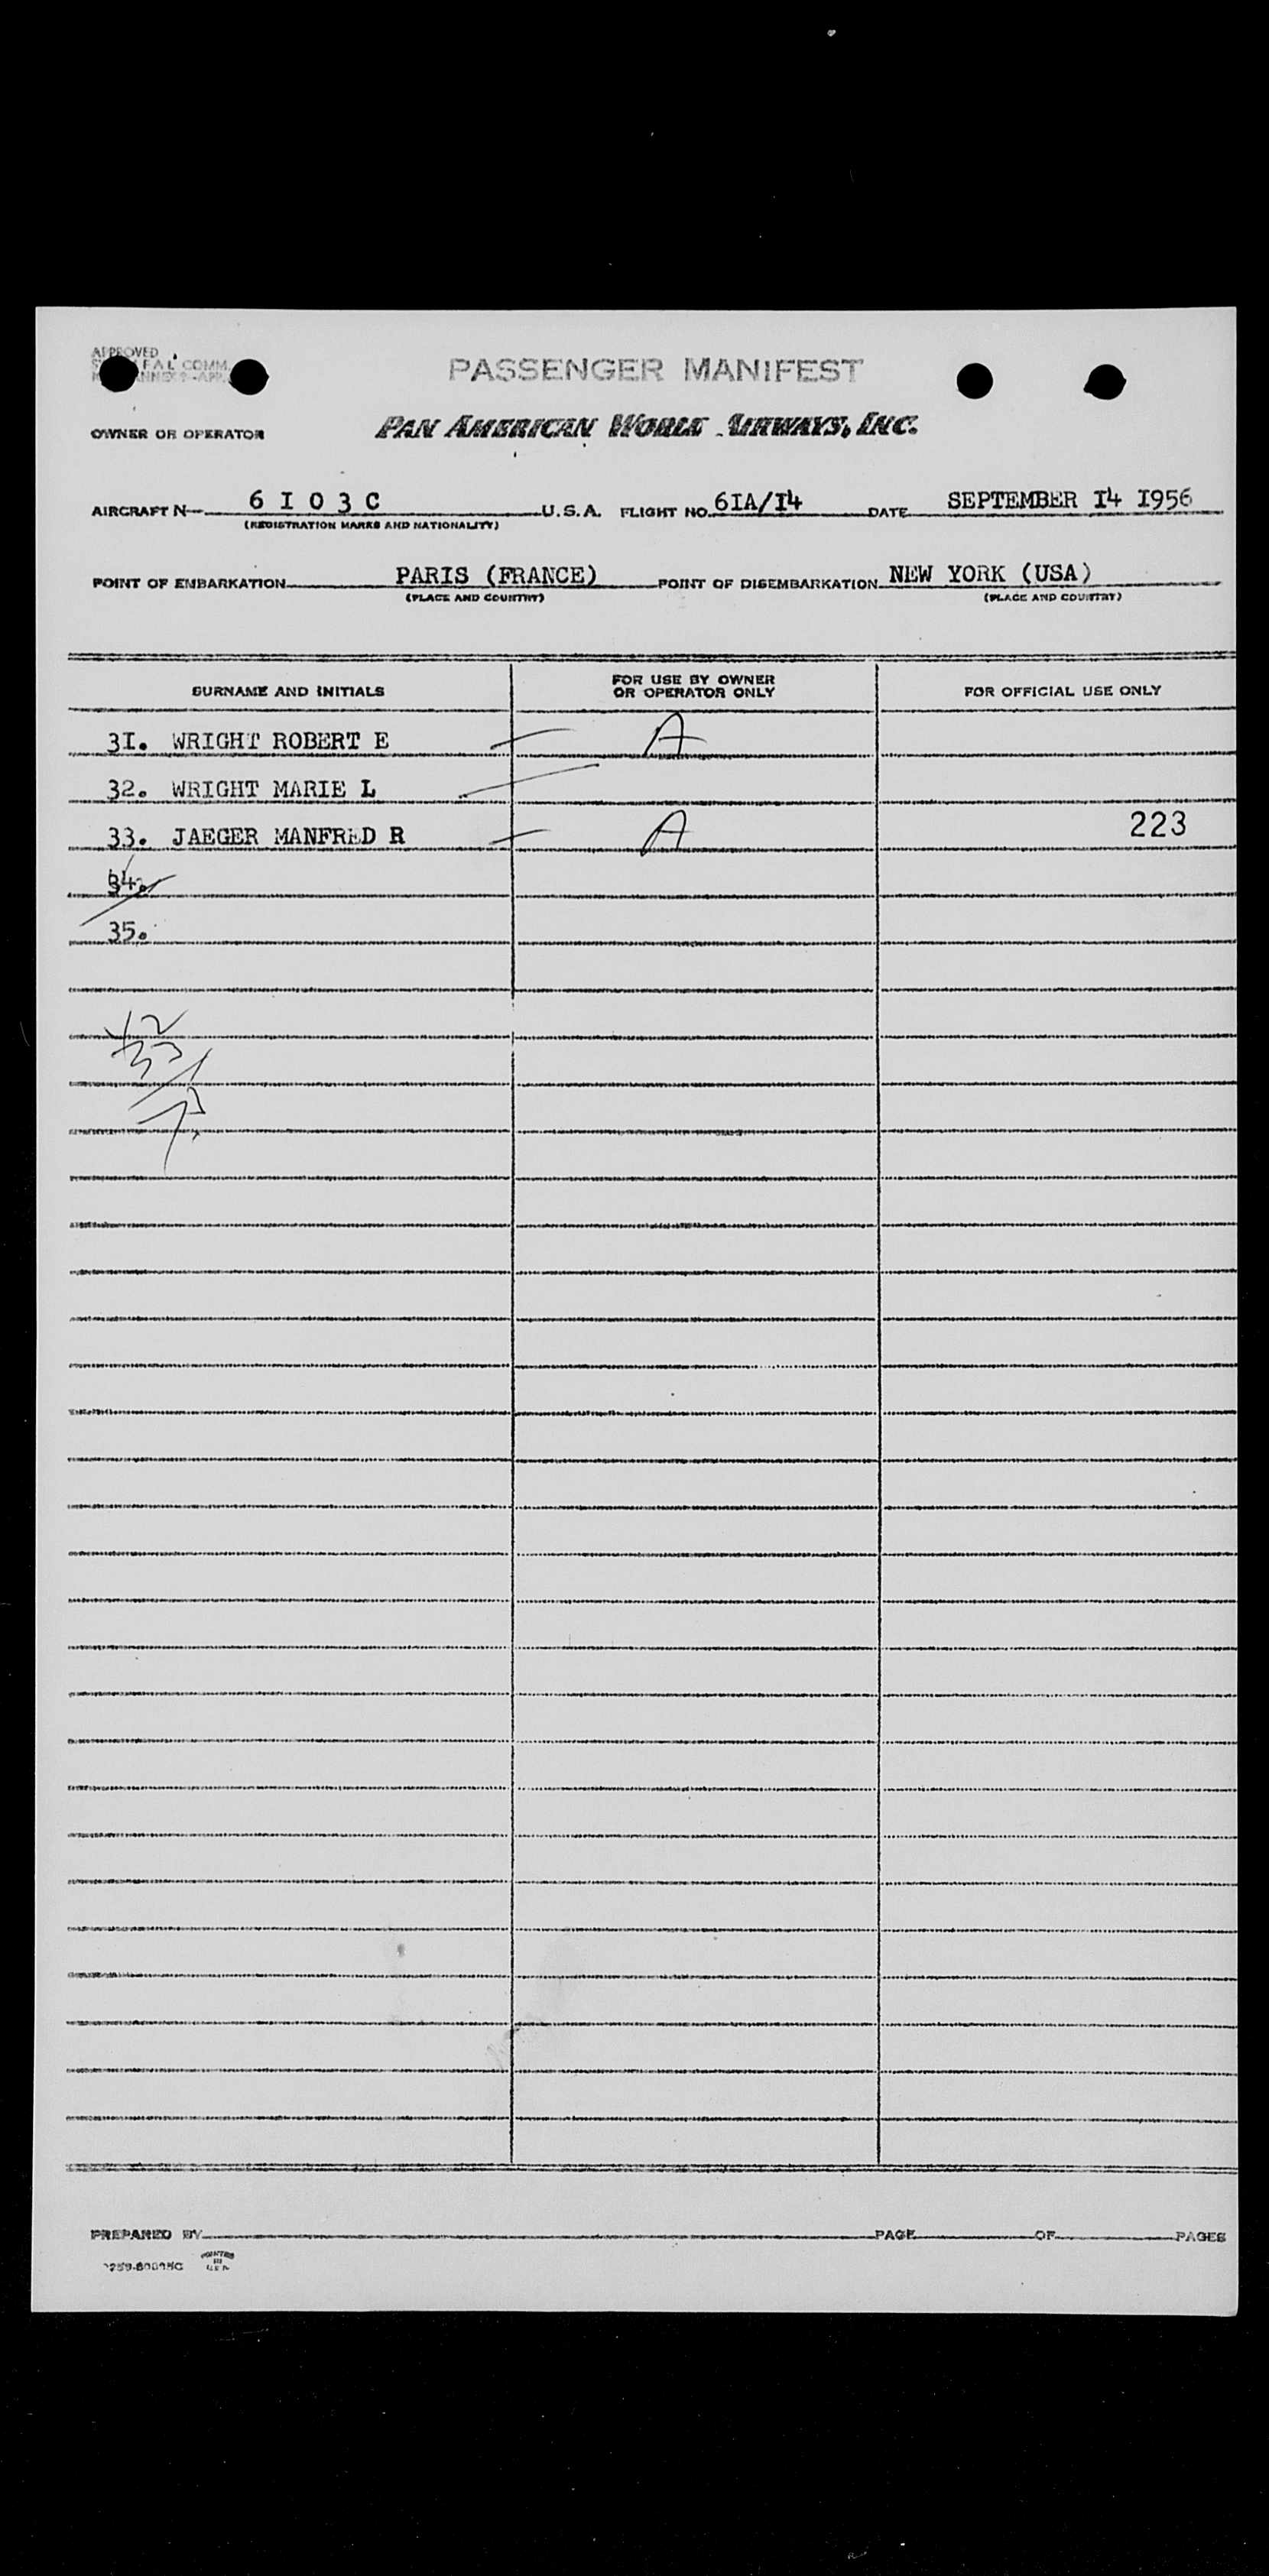 APPROVED
FAL COMM.
PASSENGER MANIFEST
OWNER OR OPERATOR PAN AMERICAN WORLD AIRWAYS, INC.
AIRCRAFT N 6 I 0 3 C U.S.A. FLIGHT NO. 6IA/I4 DATE SEPTEMBER I4 I956
(REGISTRATION MARKS AND NATIONALITY)
POINT OF EMBARKATION PARIS (FRANCE) POINT OF DISEMBARKATION NEW YORK (USA)
(PLACE AND COUNTRY) (PLACE AND COUNTRY)
SURNAME AND INITIALS FOR USE BY OWNER OR OPERATOR ONLY FOR OFFICIAL USE ONLY
3I. WRIGHT ROBERT E A
32. WRIGHT MARIE L
33. JAEGER MANFRED R A 223
34.
35.
PREPARED BY PAGE OF PAGES
PRINTED IN U.S.A.